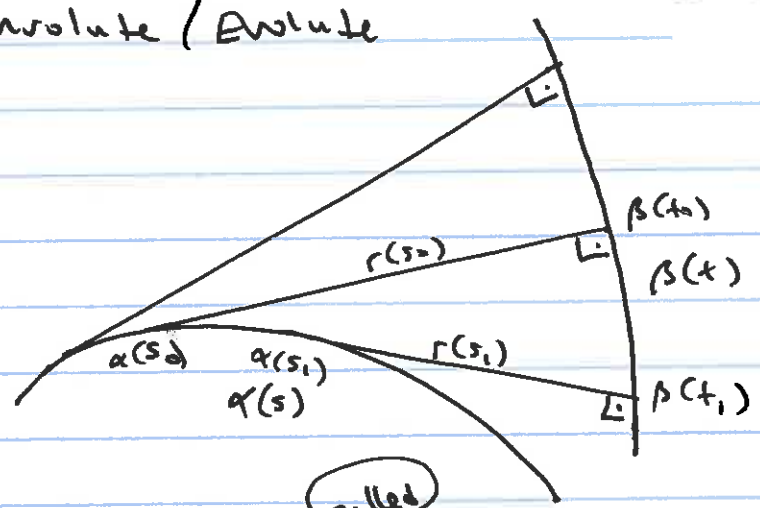 nvolute / Evolute
β(t₀)
r(s₀)
β(t)
α(s₀)
α(s₁)
r(s₁)
α(s)
β(t₁)